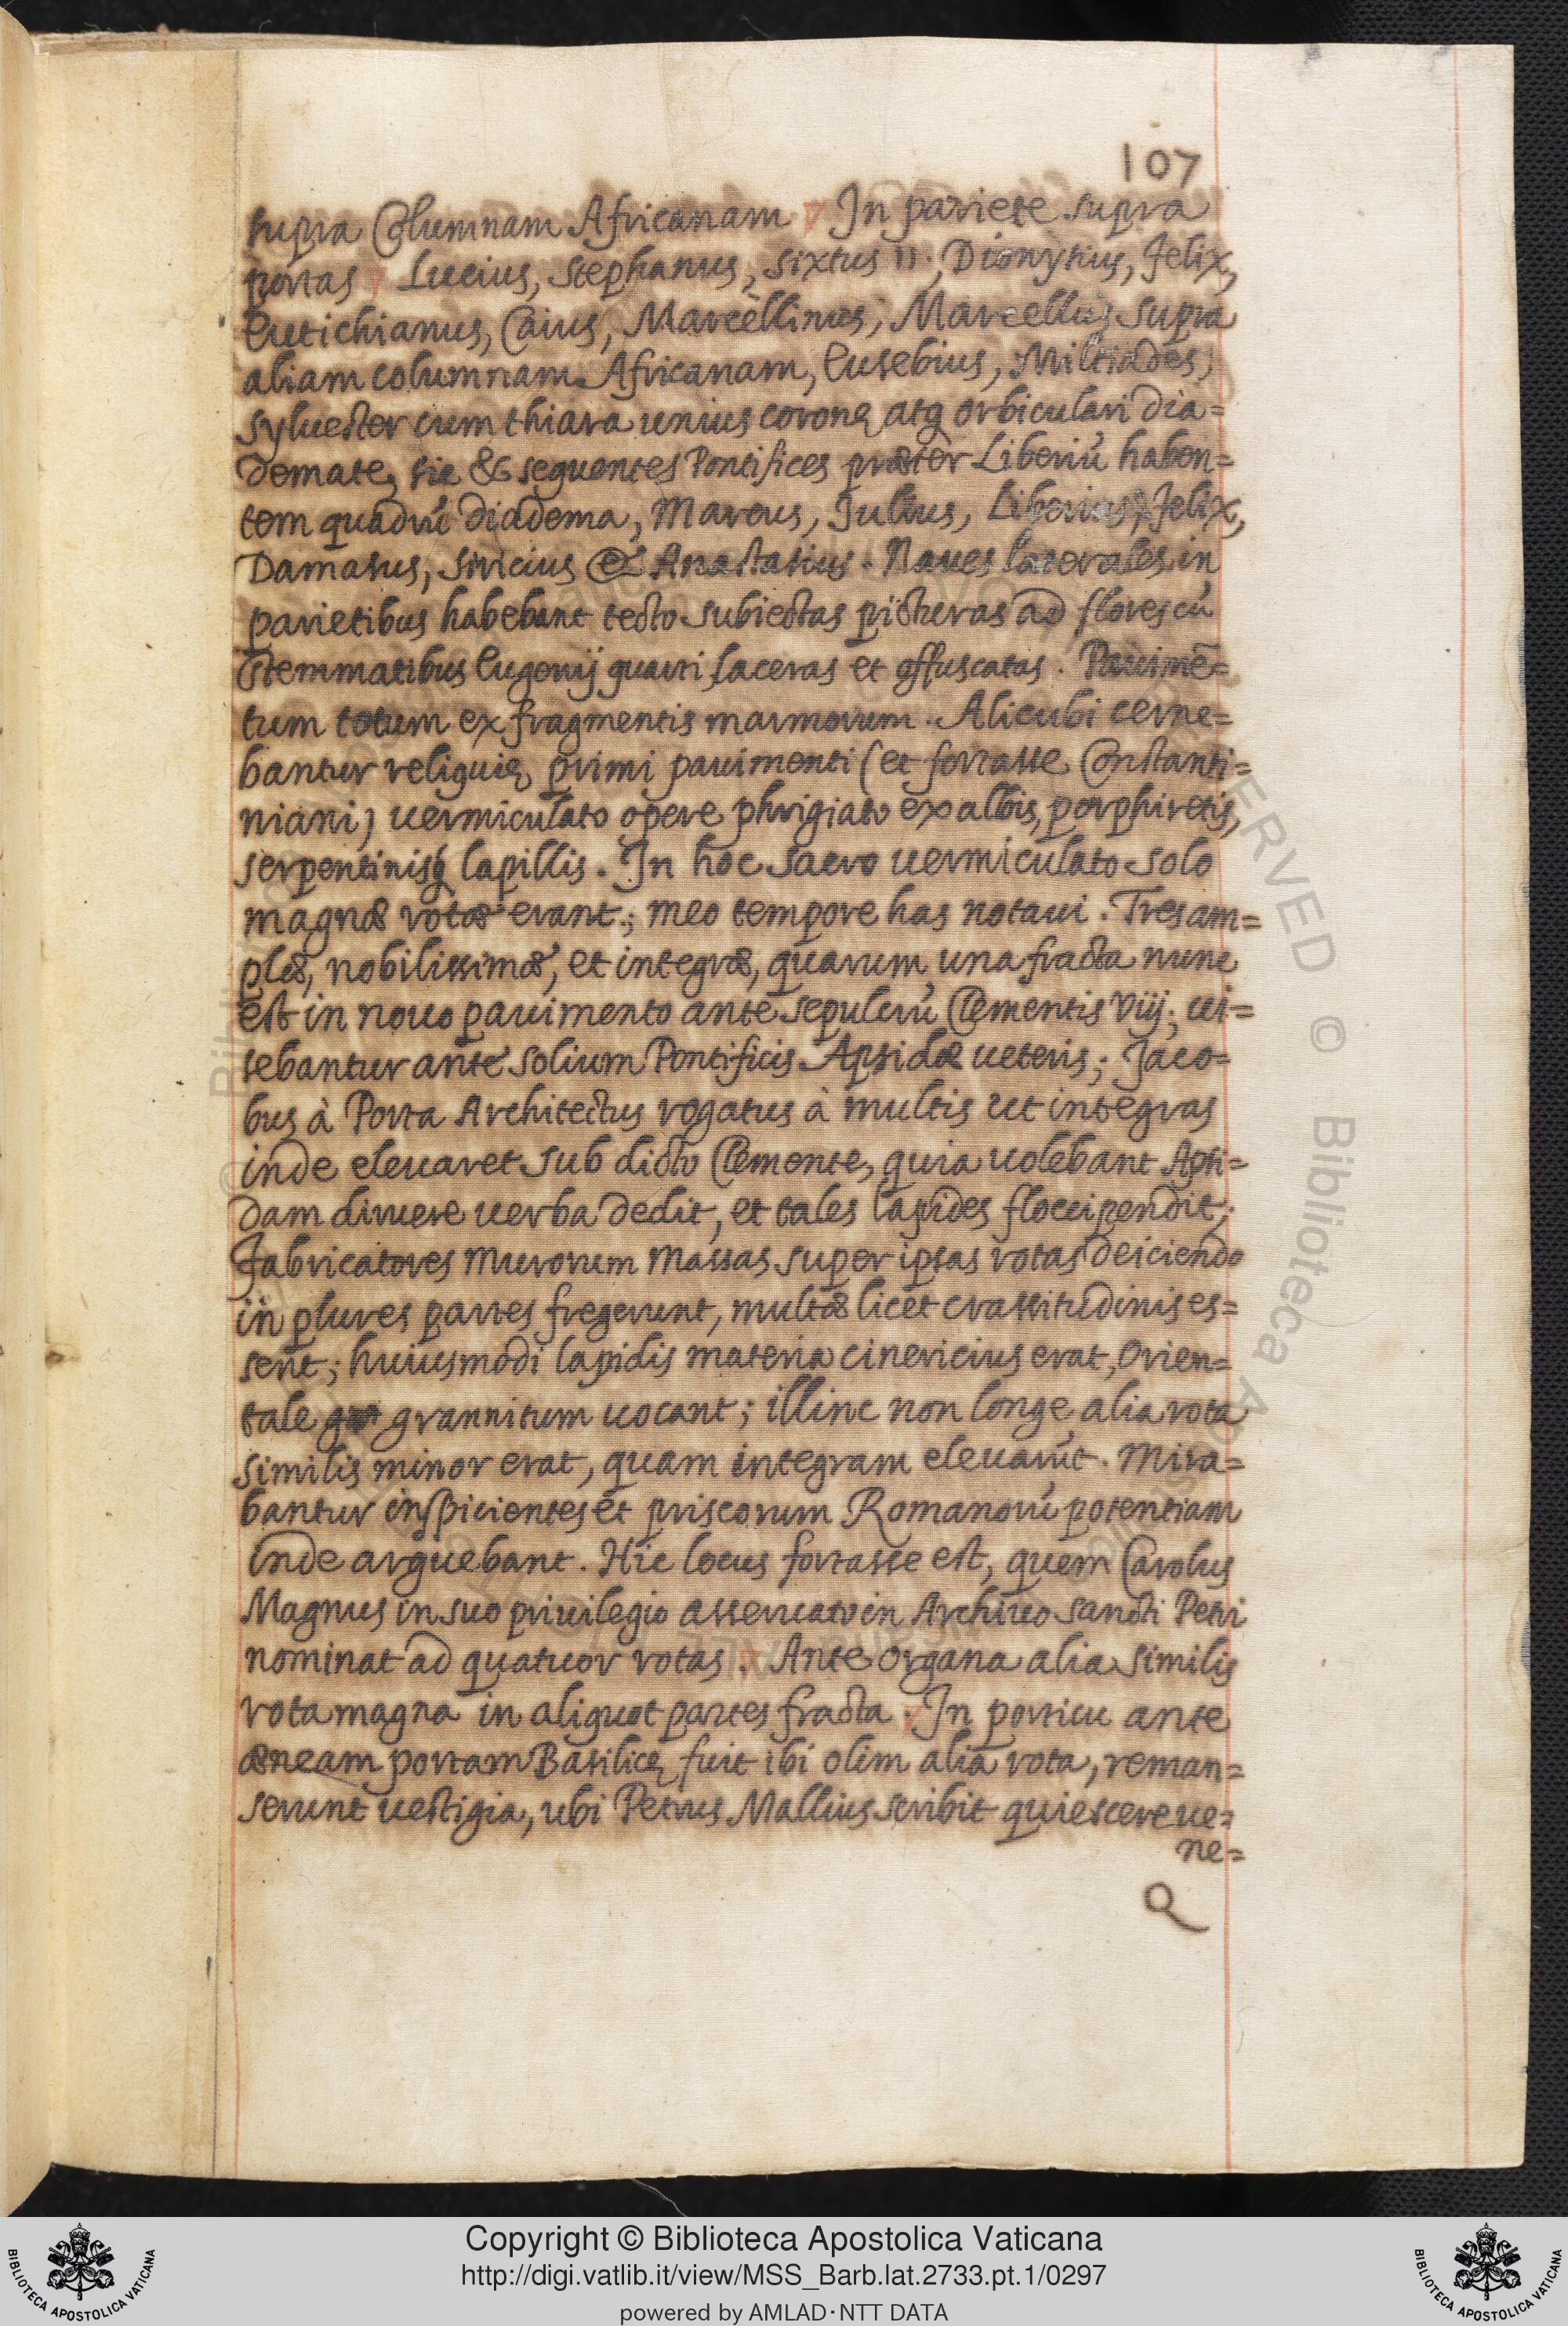 107
supra Columnam Africanam ∇ In pariete supra
portas ∇ Lucius, Stephanus, Sixtus II., Dionysius, Felix,
Eutichianus, Caius, Marcellinus, Marcellus, supra
aliam columnam Africanam, Eusebius, Miltiades,
Syluester cum thiara unius coronę atq orbiculari dia=
demate, sic & sequentes Pontifices præter Liberiū haben=
tem quadrū diadema, Marcus, Julius, Liberius, Felix,
Damasus, Siricius & Anastasius. Naues laterales in
parietibus habebant tecto subiectas picturas ad flores cū
stemmatibus Eugenij quarti laceras et offuscatas. Pauimē=
tum totum ex fragmentis marmorum. Alicubi cerne=
bantur reliquię primi pauimenti (et fortasse Constanti=
niani) uermiculato opere phrigiato ex albis, porphiretis,
serpentinisq lapillis. In hoc sacro uermiculato solo
magnæ rotæ erant; meo tempore has notaui. Tres am=
plæ, nobilissimæ, et integræ, quarum una fracta nunc
est in nouo pauimento ante sepulcrū Clementis Viij; ui=
sebantur ante solium Pontificis Apsidæ ueteris; Jaco=
bus à Porta Architectus rogatus à multis ut integras
inde eleuaret sub dicto Clemente, quia uolebant Apsi=
dam diruere uerba dedit, et tales lapides floccipendit;
Fabricatores murorum massas super ipsas rotas deiciendo
in plures partes fregerunt, multæ licet crassitudinis es=
sent; huiusmodi lapidis materia cinericius erat, Orien=
tale grannitum uocant; illinc non longe alia rota
similis minor erat, quam integram eleuarūt. Mira=
bantur inspicientes et priscorum Romanorū potentiam
inde arguebant. Hic locus fortasse est, quem Carolus
Magnus in suo priuilegio asseruato in Archiuo sancti Petri
nominat ad quatuor rotas. ∇ Ante Organa alia similis
rota magna in aliquot partes fracta. ∇ In porticu ante
æneam portam Basilicę fuit ibi olim alia rota, reman=
serunt uestigia, ubi Petrus Mallius scribit quiescere ue=
ne=
Copyright © Biblioteca Apostolica Vaticana
http://digi.vatlib.it/view/MSS_Barb.lat.2733.pt.1/0297
powered by AMLAD·NTT DATA
BIBLIOTECA APOSTOLICA VATICANA
BIBLIOTECA APOSTOLICA VATICANA